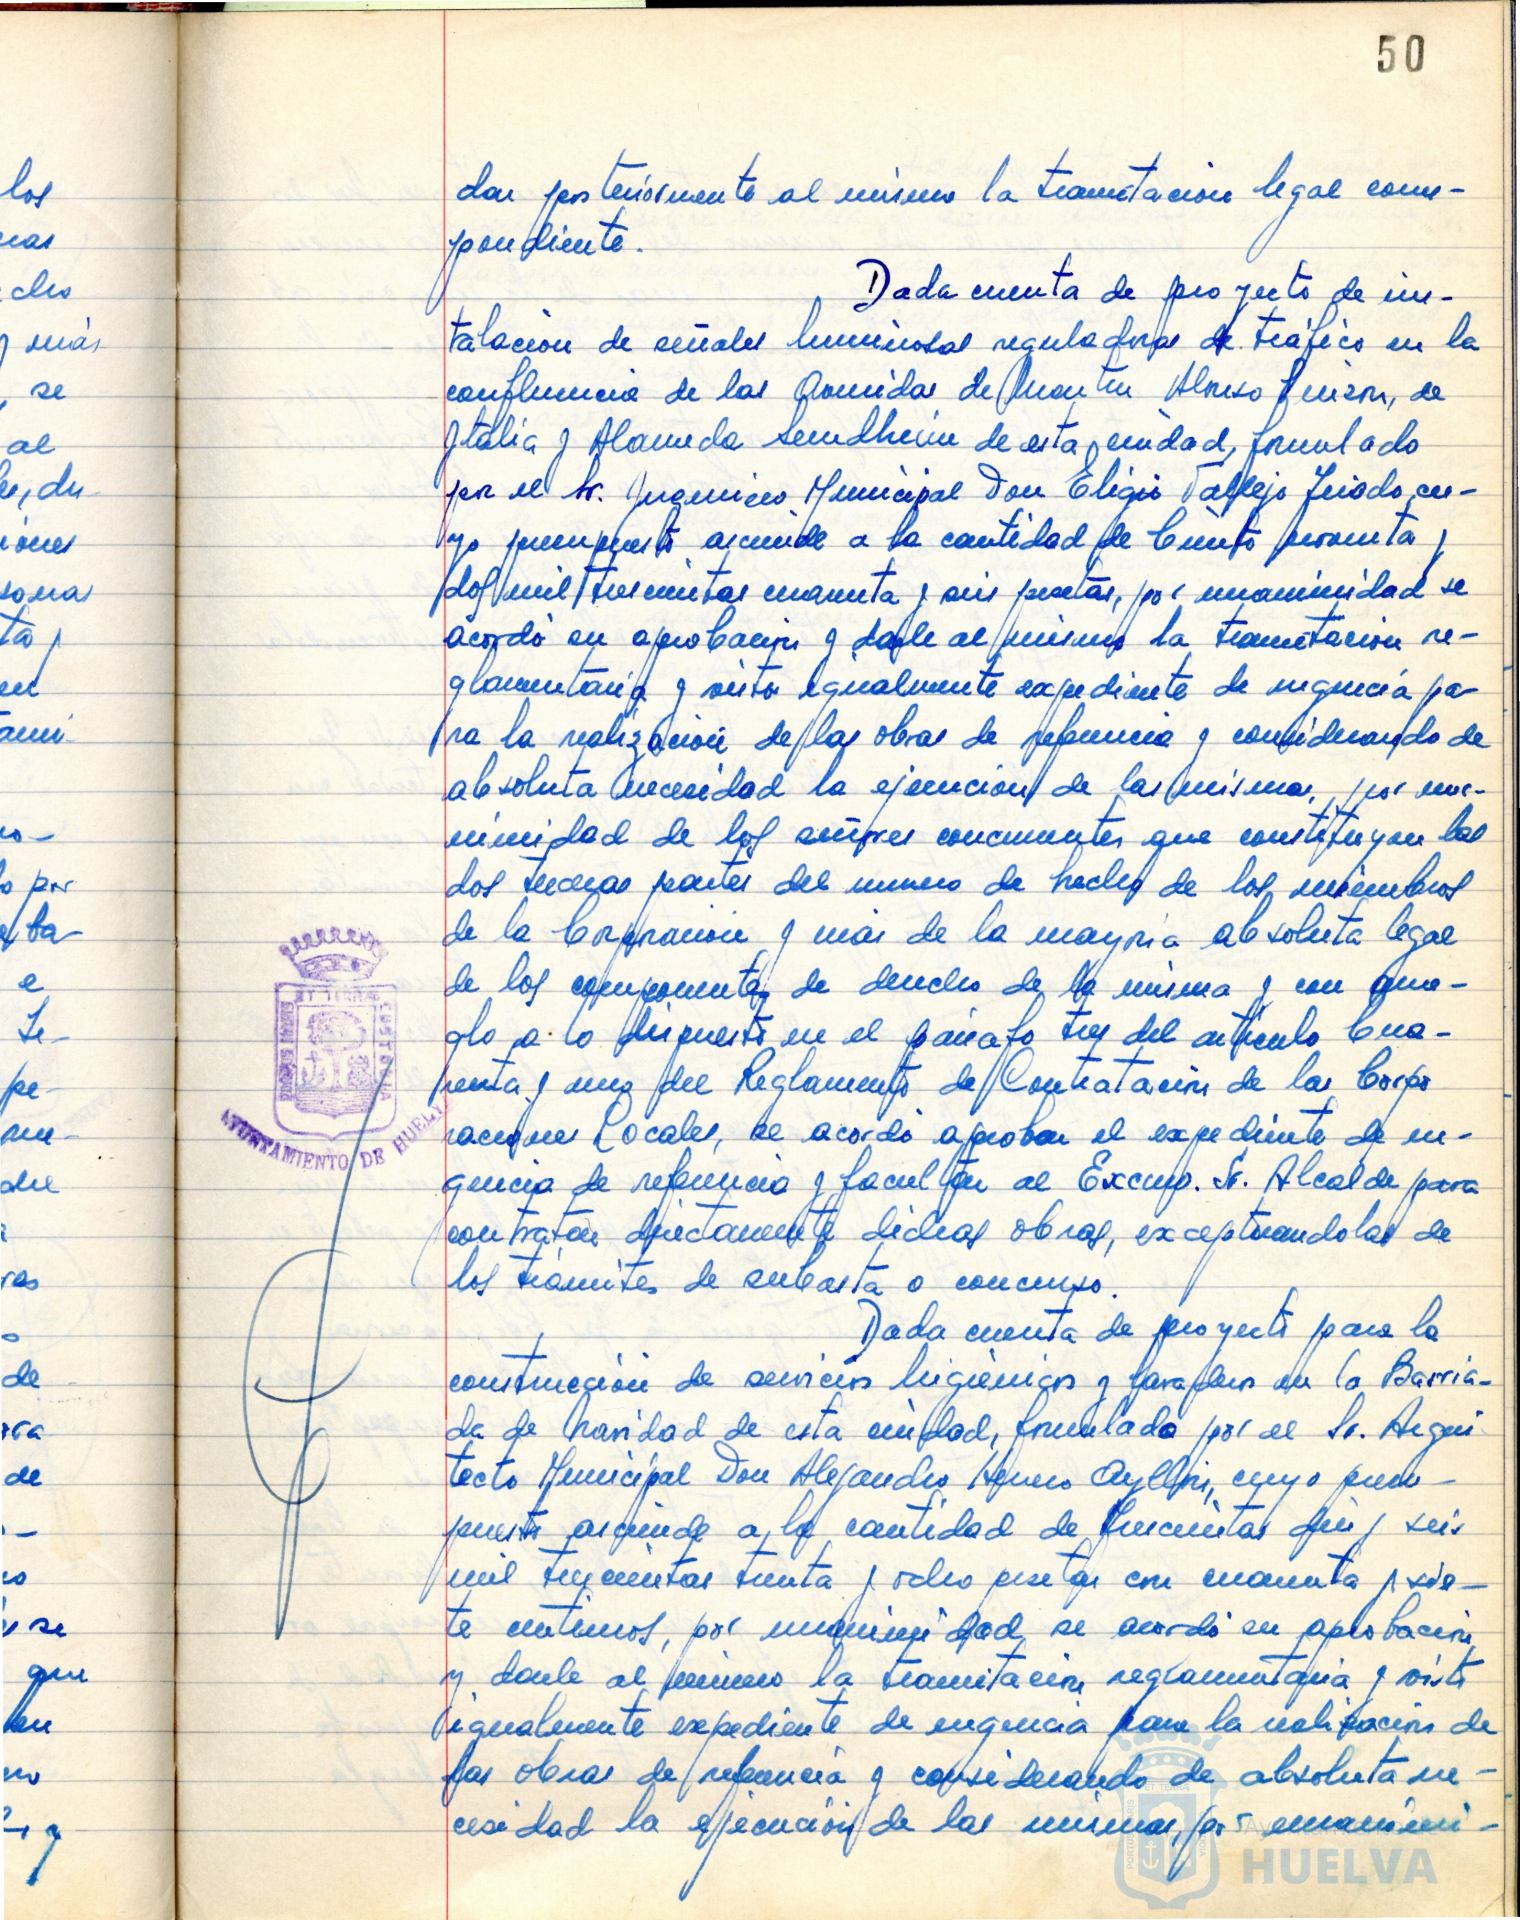 50
dar posteriormente al mismo la tramitación legal corres-
pondiente.
Dada cuenta de proyecto de ins-
talación de señales luminosas reguladoras de tráfico en la
confluencia de las Avenidas de Martín Alonso Pinzón, de
Italia y Alameda Sundheim de esta ciudad, formulado
por el Sr. Ingeniero Municipal Don Eligio Vallejo cu-
yo presupuesto asciende a la cantidad de Ciento noventa y
dos mil trescientas cuarenta y seis pesetas, por unanimidad se
acordó su aprobación y darle al mismo la tramitación re-
glamentaria y visto igualmente expediente de urgencia pa-
ra la realización de las obras de referencia y considerando de
absoluta necesidad la ejecución de las mismas, por una-
nimidad de los señores concurrentes que constituyen las
dos terceras partes del número de hecho de los miembros
de la Corporación y más de la mayoría absoluta legal
de los componentes de derecho de la misma y con arre-
glo a lo dispuesto en el párrafo tres del artículo Cua-
renta y uno del Reglamento de Contratación de las Corpo
raciones Locales, se acordó aprobar el expediente de ur-
gencia de referencia y facultar al Excmo. Sr. Alcalde para
contratar directamente dichas obras, exceptuandolas de
los trámites de subasta o concurso.
Dada cuenta de proyecto para la
construcción de servicios higiénicos y lavaderos en la Barria-
da de Navidad de esta ciudad, formulado por el Sr. Arqui
tecto Municipal Don Alejandro Herrero Ayllón, cuyo presu-
puesto asciende a la cantidad de trescientas diez y seis
mil trescientas treinta y ocho pesetas con cuarenta y sie-
te céntimos, por unanimidad se acordó su aprobación
y darle al mismo la tramitación reglamentaria y visto
igualmente expediente de urgencia para la realización de
las obras de referencia y considerando de absoluta ne-
cesidad la ejecución de las mismas, por unanimi-
PORTUS MARIS ET TERRAE CUSTODIA
AYUNTAMIENTO DE HUELVA
HUELVA